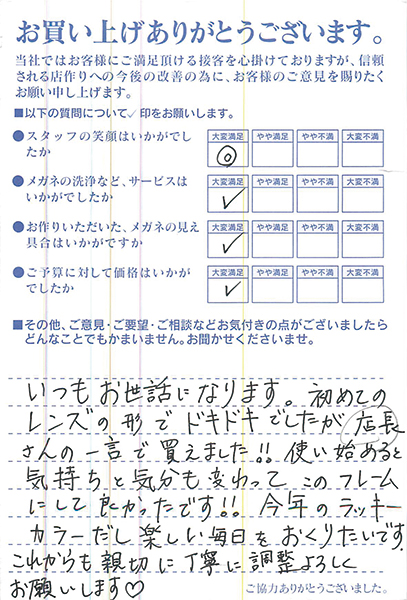 お買い上げありがとうございます。
当社ではお客様にご満足頂ける接客を心掛けておりますが、信頼
される店作りへの今後の改善の為に、お客様のご意見を賜りたく
お願い申し上げます。
■以下の質問について✓印をお願いします。
●スタッフの笑顔はいかがでし
たか
大変満足 やや満足 やや不満 大変不満
◎
●メガネの洗浄など、サービスは
いかがでしたか
大変満足 やや満足 やや不満 大変不満
✓
●お作りいただいた、メガネの見え
具合はいかがですか
大変満足 やや満足 やや不満 大変不満
✓
●ご予算に対して価格はいかが
でしたか
大変満足 やや満足 やや不満 大変不満
✓
■その他、ご意見・ご要望・ご相談などお気付きの点がございましたら
どんなことでもかまいません。お聞かせくださいませ。
いつもお世話になります。初めての
レンズの形でドキドキでしたが店長
さんの一言で買えました!!使い始めると
気持ちと気分も変わってこのフレーム
にして良かったです!!今年のラッキー
カラーだし楽しい毎日をおくりたいです。
これからも親切に丁寧に調整よろしく
お願いします♡
ご協力ありがとうございました。